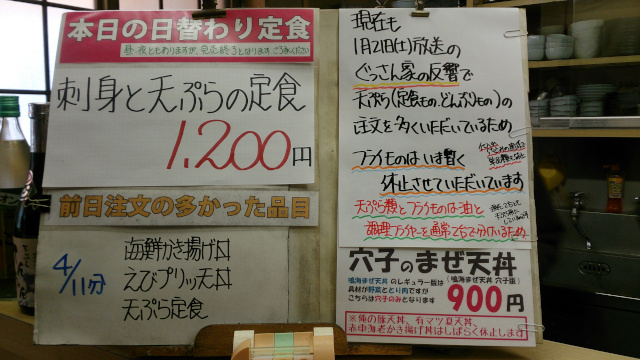 本日の日替わり定食
昼・夜ともありますが、完売終了となります ご了承ください
刺身と天ぷらの定食
1,200円
前日注文の多かった品目
4/11分
海鮮かき揚げ丼
えびプリッ天丼
天ぷら定食
現在も
1月21日(土)放送の
ぐっさん家の反響で
天ぷら(定食もの、どんぶりもの)の
注文を多くいただいているため
フライものはいま暫く
休止させていただいています
天ぷら類とフライものは油と
調理フライヤーを通常
分けているため
穴子のまぜ天丼
鳴海まぜ天丼 のレギュラー版は
(鳴海まぜ天丼 穴子版)
具材が野菜ととり肉ですが
こちらは穴子のみとなります
900円
※俺の豚天丼、有マツ夏天丼、
赤中海老かき揚げ丼はしばらく休止します